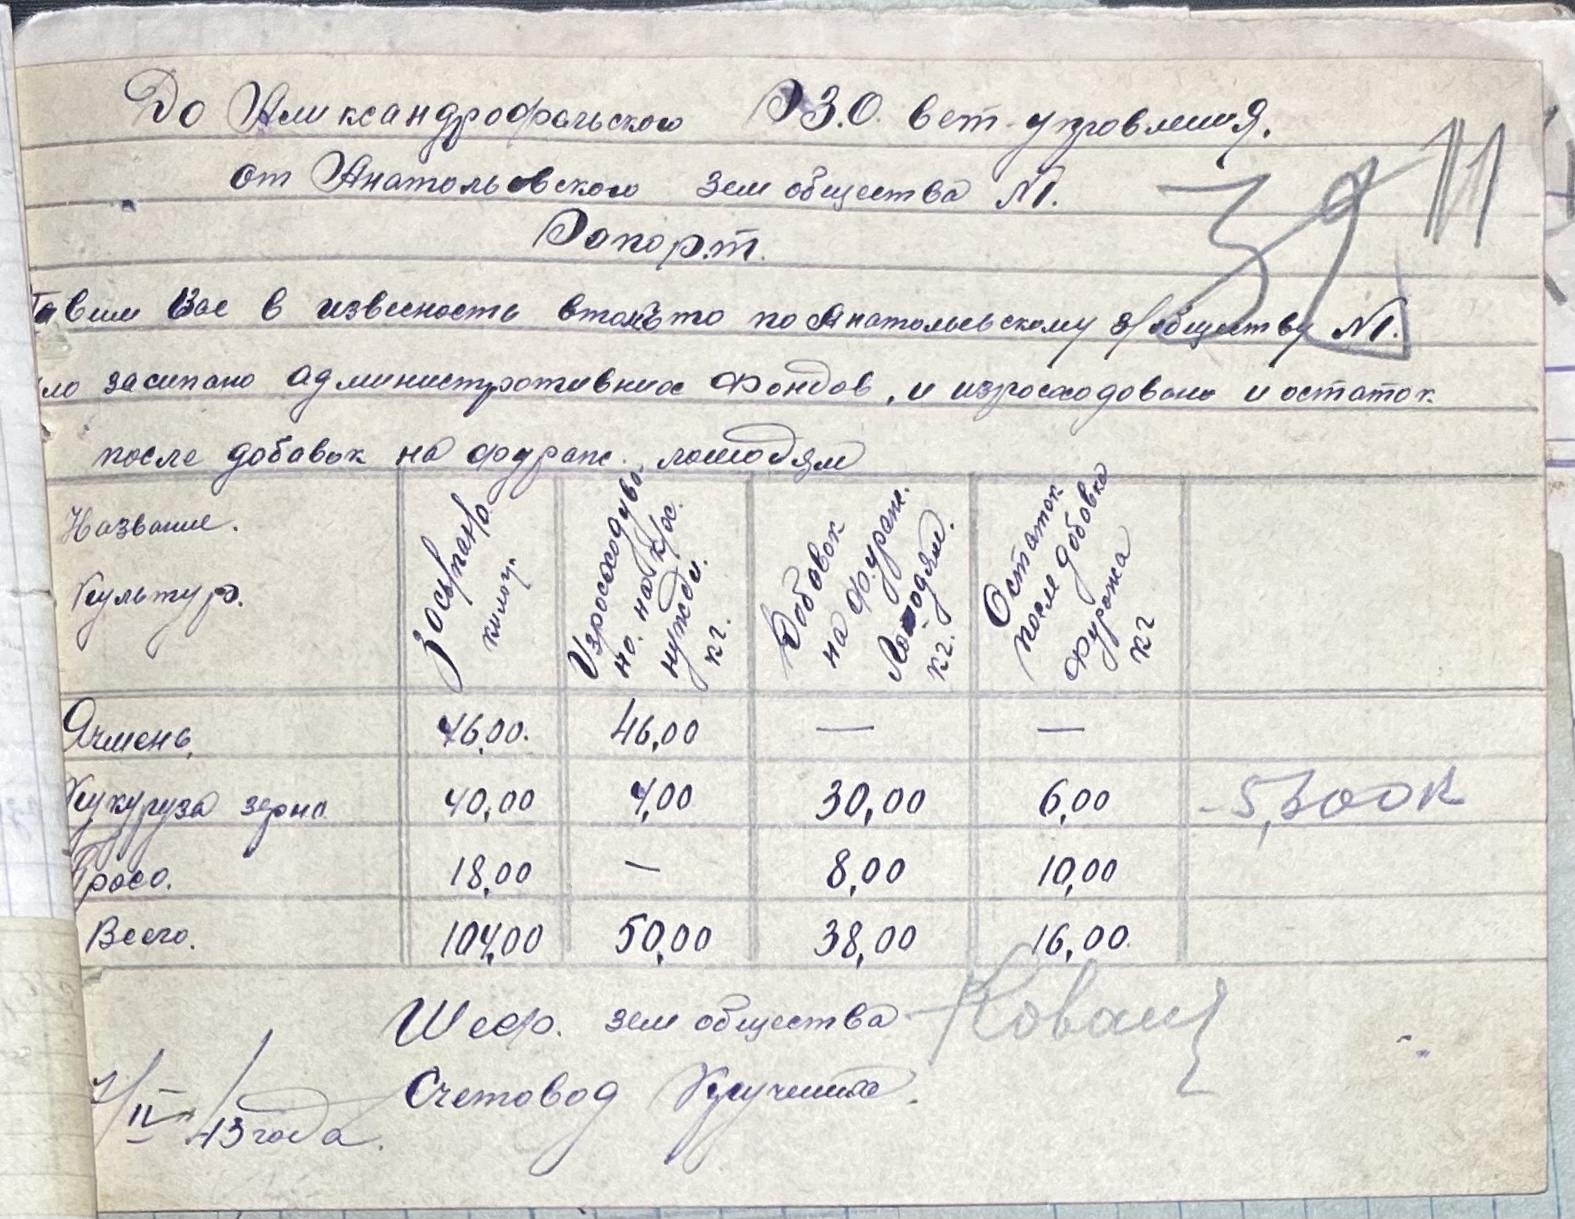 До Александрофельского РЗО вет. упровления.
от Анатольевского зем общества №1.
Ропорт.
Ставим Вас в извесность втом что по Анатольевскому з/обществу №1.
засипано административних фондов, и изросходовано и остаток
после добавок на фураж. лошодям
Название. Культур.
Засыпано килогр.
Узросходувоно. на х/ос. нужди. кг.
Добовок на фураж. Лошодям. кг.
Остаток после добовка фуража кг
Ячмень, 46,00. 46,00 — —
Кукуруза зерно 40,00 4,00 30,00 6,00 - 5,300 к
Просо. 18,00 — 8,00 10,00
Всего. 104,00 50,00 38,00 16,00.
Шеф. зем общества
Счетовод
43 года.
39
11